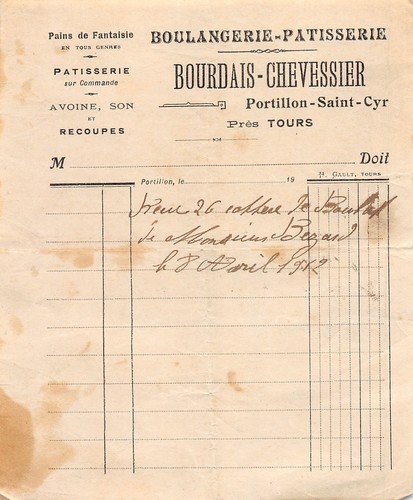 Pains de Fantaisie
EN TOUS GENRES
PATISSERIE
sur Commande
AVOINE, SON
ET
RECOUPES
BOULANGERIE-PATISSERIE
BOURDAIS-CHEVESSIER
Portillon-Saint-Cyr
Près TOURS
M Doit
Portillon, le 19 H. GAULT, TOURS
26 de
de Monsieur Bezard
le 8 Avril 1912